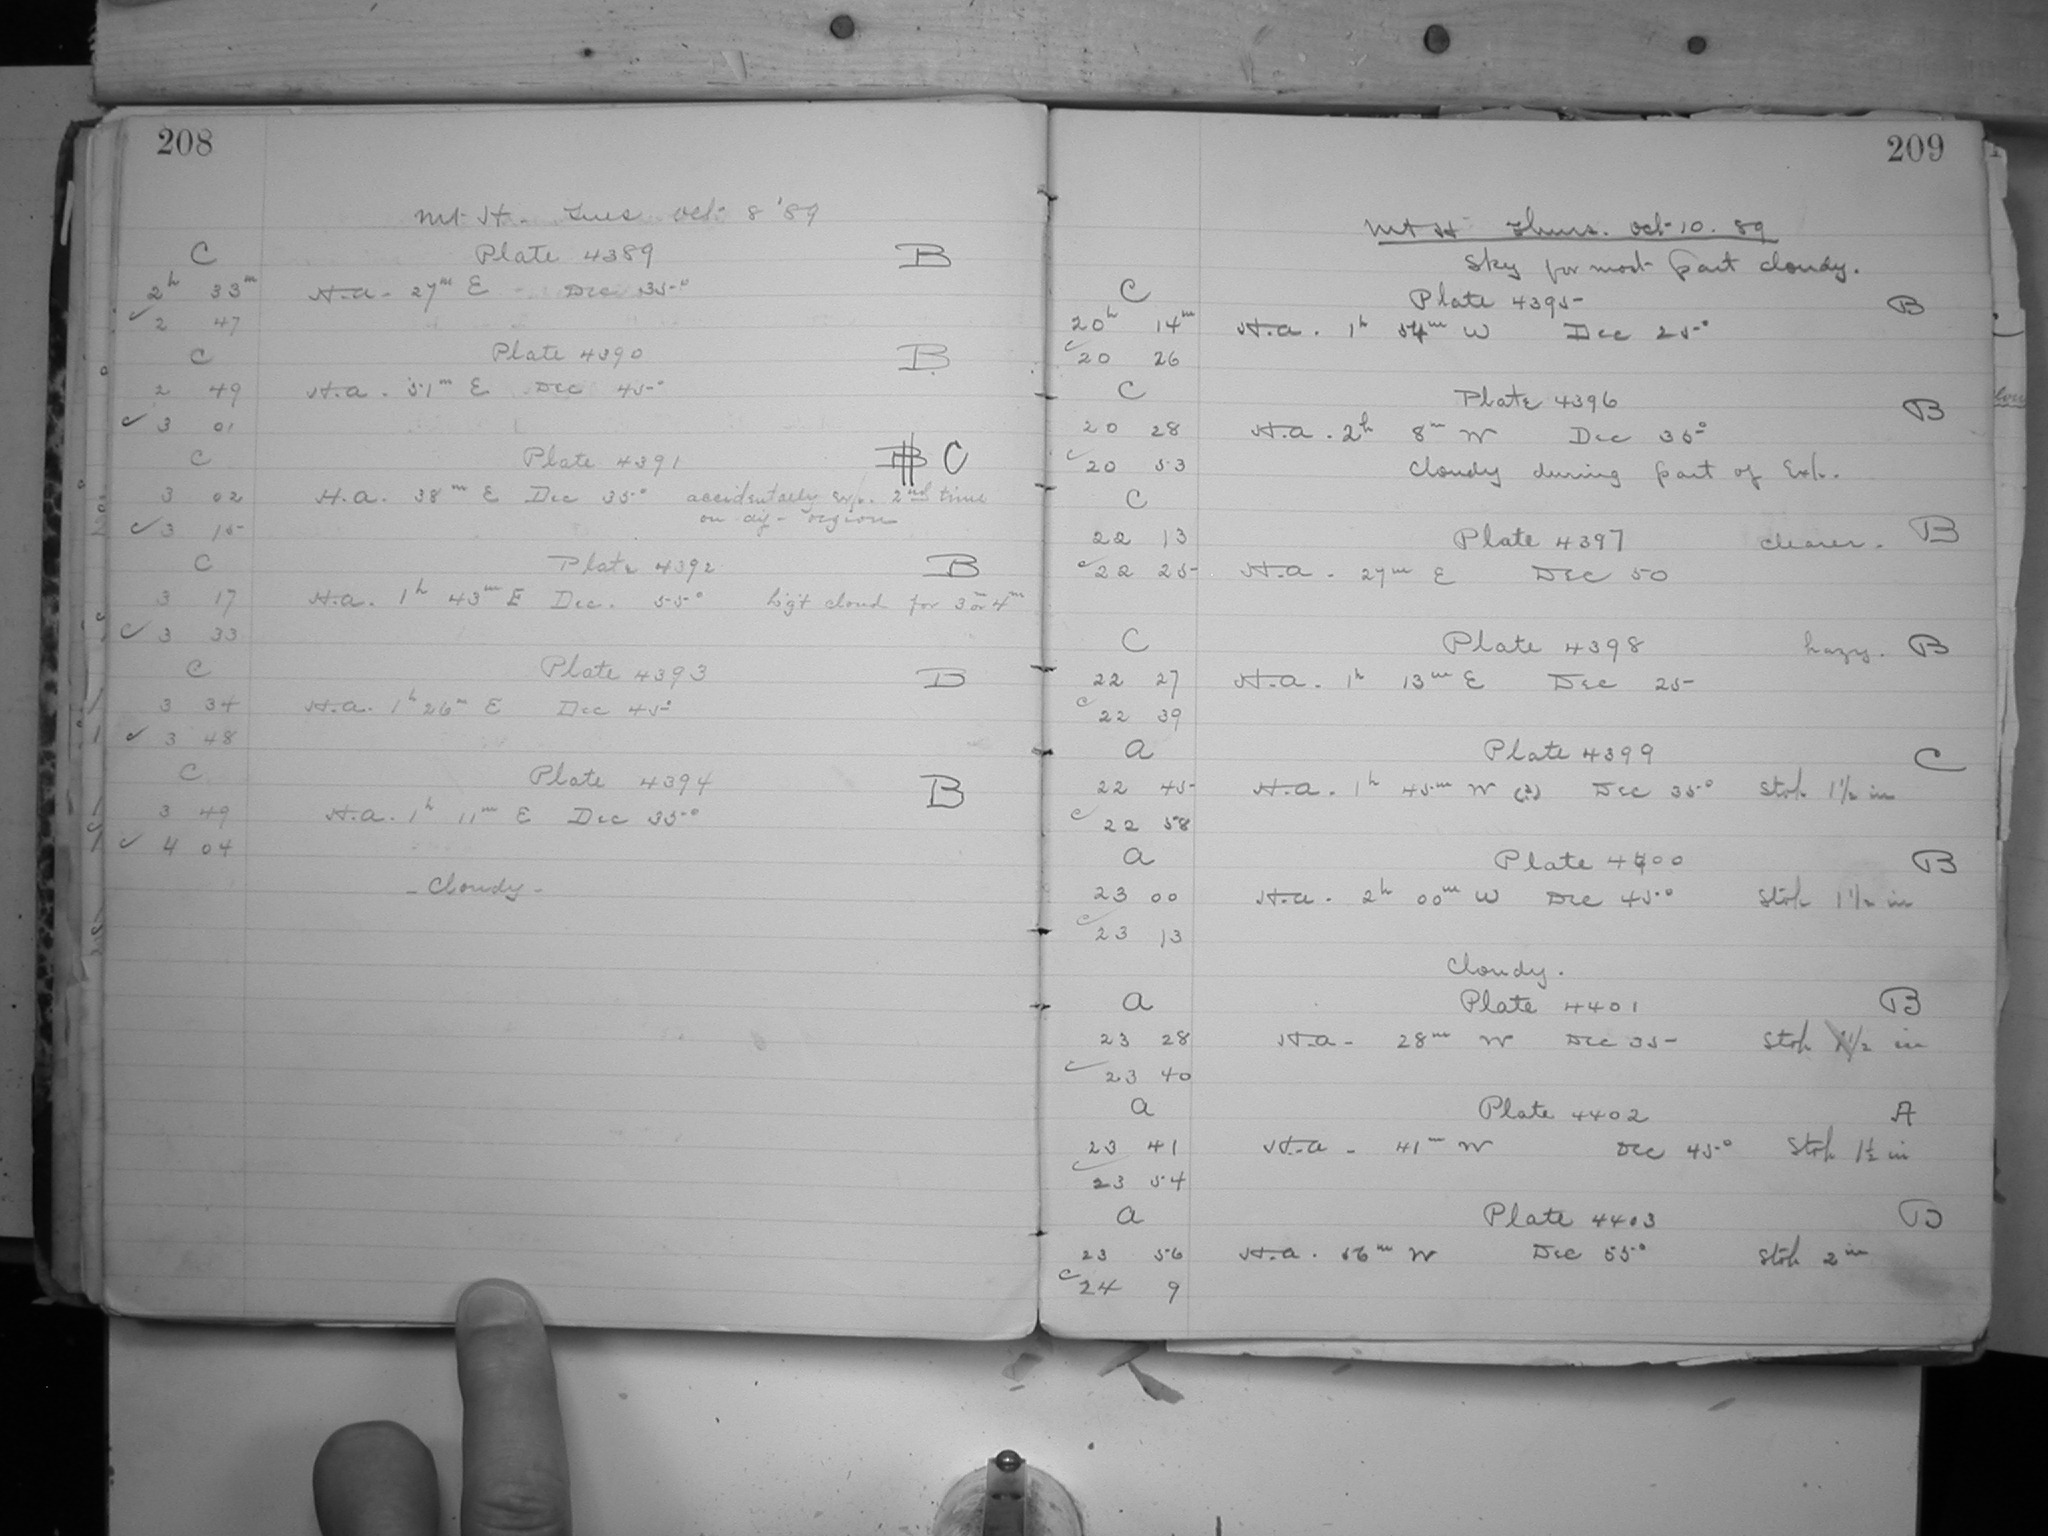 208
Mt H. Tues Oct 8 '89
C Plate 4389 B
2h 33m H.a. 27m E Dec 35°
2 47
C Plate 4390 B
2 49 H.a. 51m E Dec 45°
3 01
C Plate 4391 C
3 02 H.a. 38m E Dec 35° accidentally exp. 2nd time
3 15 on dif- region
C Plate 4392 B
3 17 H.a. 1h 43m E Dec. 55° ligt cloud for 3m or 4m
3 33
C Plate 4393 D
3 34 H.a. 1h 26m E Dec 45°
3 48
C Plate 4394 B
3 49 H.a. 1h 11m E Dec 35°
4 04
- Cloudy -
209
Mt H Thurs. Oct 10. 89
Sky for most part cloudy.
C Plate 4395 B
20h 14m H.a. 1h 54m W Dec 25°
20 26
C Plate 4396 B
20 28 H.a. 2h 8m W Dec 35°
20 53 Cloudy during part of Exp.
C
22 13 Plate 4397 clearer. B
22 25 H.a. 27m E Dec 50
C Plate 4398 hazy. B
22 27 H.a. 1h 13m E Dec 25
22 39
a Plate 4399 C
22 45 H.a. 1h 45m W (?) Dec 35° Stop 1 1/2 in
22 58
a Plate 4400 B
23 00 H.a. 2h 00m W Dec 45° Stop 1 1/2 in
23 13
Cloudy.
a Plate 4401 B
23 28 H.a. 28m W Dec 35 Stop 1 1/2 in
23 40
a Plate 4402 A
23 41 H.a. 41m W Dec 45° Stop 1 1/2 in
23 54
a Plate 4403 B
23 56 H.a. 56m W Dec 55° Stop 2 in
24 9